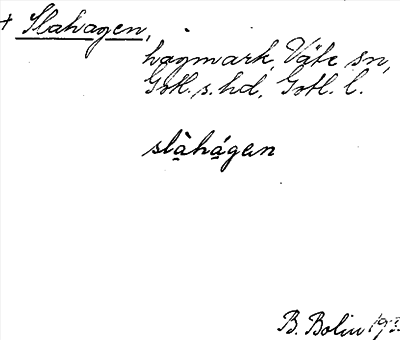 + Slahagen,
hagmark, Väte sn,
Gotl. s. hd, Gotl. l.
slàhágen
B. Bolin